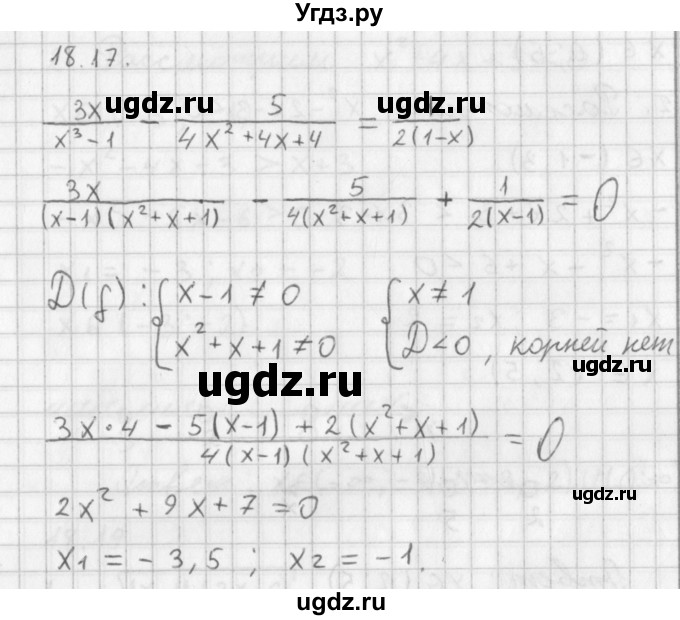 Угдз.ру
18.17.
3x/(x³ - 1) - 5/(4x² + 4x + 4) = 1/(2(1-x))
ugdz.ru ugdz.ru
3x/((x-1)(x²+x+1)) - 5/(4(x²+x+1)) + 1/(2(x-1)) = 0
D(f): { x - 1 ≠ 0 { x ≠ 1
x² + x + 1 ≠ 0 D < 0, корней нет
ugdz.ru ugdz.ru
(3x·4 - 5(x-1) + 2(x²+x+1))/(4(x-1)(x²+x+1)) = 0
2x² + 9x + 7 = 0
ugdz.ru
x1 = -3,5; x2 = -1.
ugdz.ru